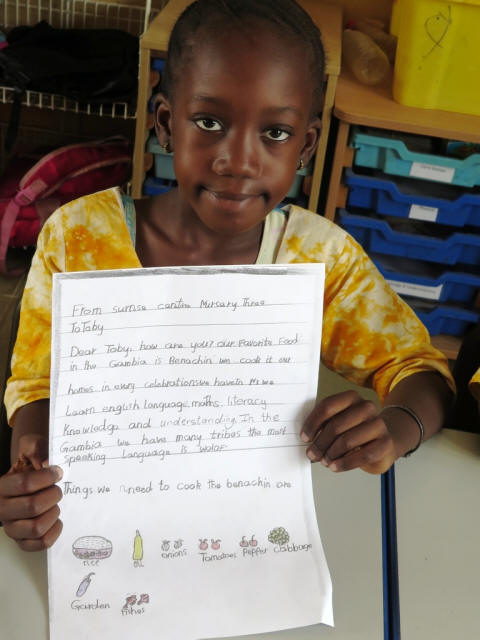 From sunrise centre Nursery Three
To Toby
Dear Toby, how are you? our favorite food
in the Gambia is Benachin we cook it our
homes in every celebrations we have in it. we
Learn english language, maths, literacy
knowledge and understanding. In the
Gambia we have many tribes the most
speaking language is wolof.
Things we need to cook the benachin are
rice oil onions Tomatoes Pepper cabbage
Garden fishes